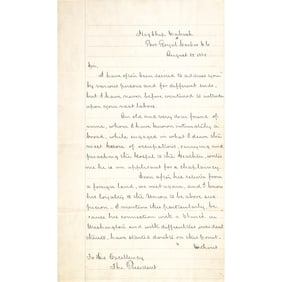 Flag Ship Wabash
Port Royal Harbor S.C.
August 1862
Sir,
I have often been desired to address you
by various persons and for different ends,
but I have never before ventured to intrude
upon your vast labors.
An old and very dear friend of
mine, whom I have known intimately a-
broad, while engaged in what I deem the
most of occupations, carrying and
preaching the Gospel to the Heathen, writes
me he is an applicant for a chaplaincy.
Soon after his return from
a foreign land, we met again, and I know
his loyalty to the Union to be above sus-
picion. I mention this particularly, be-
cause his connection with a church in
Washington and with difficulties
, have started doubts on this point.
Without
To His Excellency
The President